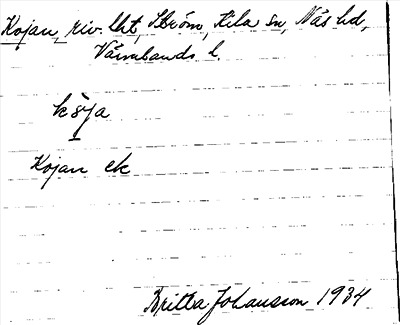 Kojan, riv. lht, Ström, Kila sn, Näs hd,
Värmlands l.
kö̀ya
Kojan ek
Britta Johansson 1934